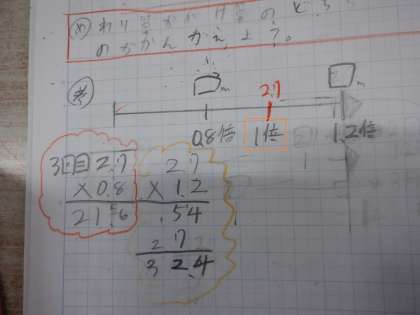 ㋱ わり算かかけ算の
のちがんがえよう。
㋕
□m 27 □m
0.8倍 1倍 1.2倍
3回目 27
×0.8
21.6
27
×1.2
54
27
32.4